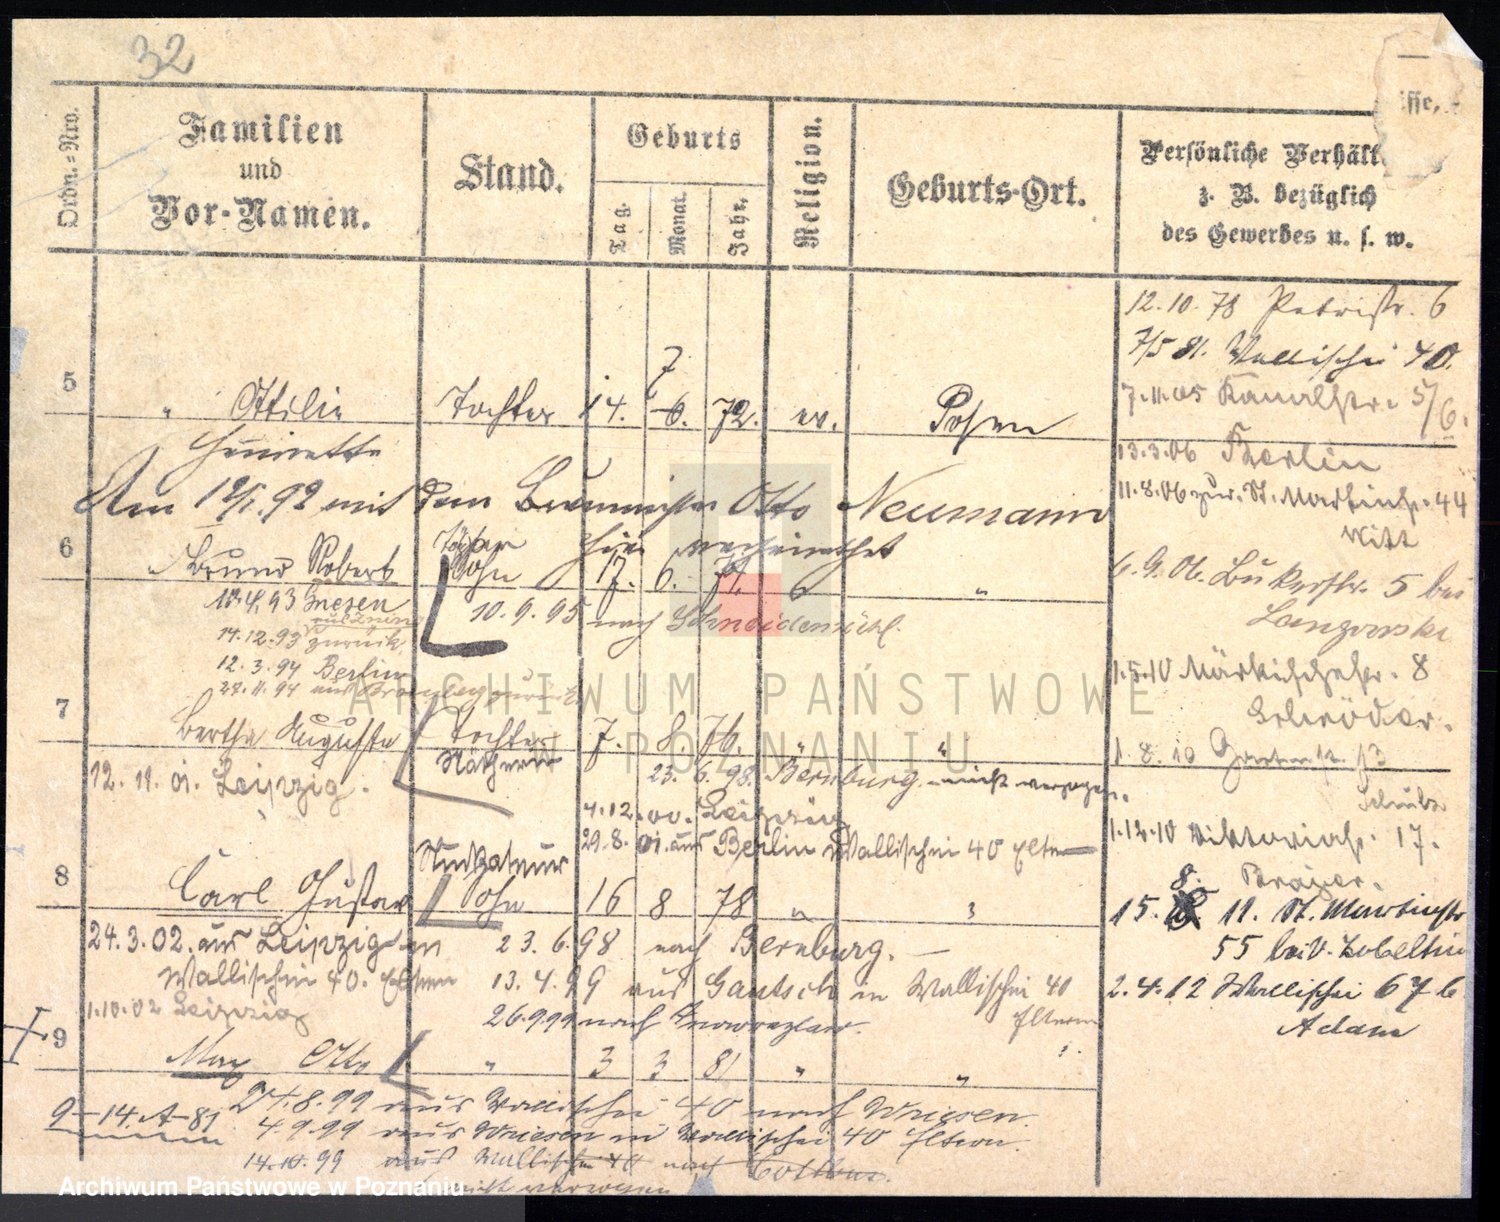 32
Ordn.=Nro.
Familien
und
Vor-Namen.
Stand.
Geburts
Tag.
Monat.
Jahr.
Religion.
Geburts-Ort.
Persönliche Verhält
z. B. bezüglich
des Gewerbes u. s. w.
isse,
12.10.78 Petristr. 6
7/5 81. Wallischei 40.
7.11.05 Kanalstr. 5/6.
13.3.06 Berlin
11.8.06 zur. St. Martinstr. 44
Witt
6.9.06. Bukerstr. 5 bei
1.5.10 Märkischestr. 8
Schröder.
1.8.10
1.12.10 Viktoriastr. 17.
8.
15. 11. St. Martinstr
55 bei v. Zobeltin
2.4.12 Wallischei 67 b
Adam
5
" Ottilie Tochter 14. 6. 7 72. ev. Posen
Henriette
Am 12/1.92 mit dem Otto Neumann
hier verheirathet
6
Bruno Robert Sohn 17. 6. 74. "
10.4.93 Gnesen
14.12.93 zurück
12.3.94 Berlin
10.9.95 nach Schneidemühl.
7
Bertha Auguste Tochter 7. 8. 76. " "
Nätherin
12.11.01. Leipzig.
23.6.98. Bernburg nicht verzogen.
4.12.00. Leipzig
29.8.01. aus Berlin Wallischei 40 Eltern
8
Carl Gustav Sohn 16 8 78 "
24.3.02. aus Leipzig in
Wallischei 40. Eltern
1.10.02 Leipzig
23.6.98 nach Bernburg.
13.4.99 aus Gautsch in Wallischei 40
Eltern
26.9.99 nach Inowrazlaw.
9
Max Otto " 3 3 81 " "
9-14.A-81
24.8.99 aus Wallischei 40 nach Wriesen.
4.9.99 aus Wriesen in Wallischei 40 Eltern
14.10.99 aus Wallischei 40 nach Cottbus.
ARCHIWUM PAŃSTWOWE
W POZNANIU
Archiwum Państwowe w Poznaniu